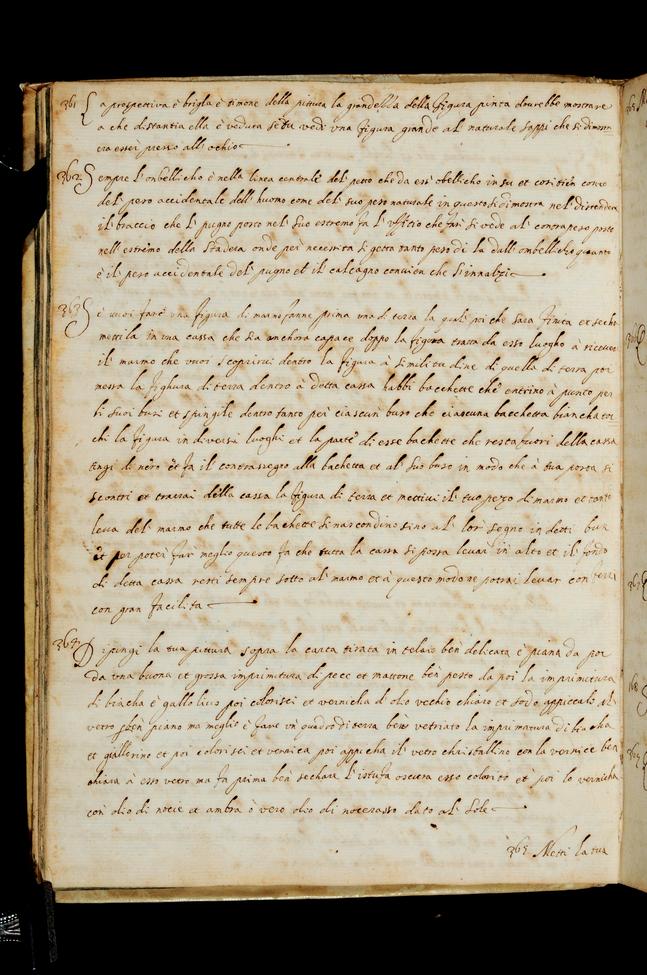 361 La prospettiva è brigla è timone della pittura la grandezza della figura pinta dourebbe mostrare
a che distantia ella è veduta se tu vedi una figura grande al naturale sappi che si dimos
tra esser presso all'ochio
362 Sempre l'onbellicho è nella linea centrale del petto che da esso obellicho in su et cosi tien conto
del peso accidentale dell huomo come del suo peso naturale in questo si dimostra nel distendere
il braccio che l pugno posto nel suo estremo fa l'ufitio che far si vede al contrapeso posto
nell estremo della stadera onde per necessita si getta tanto peso di la dall'ombellicho quanto
è il peso accidentale del pugno et il calcagno convien che s'innalzi
363 Se vuoi fare una figura di marmo fanne prima una di terra la qual poi che sara finita et secha
mettila in una cassa che sia anchora capace doppo la figura tratta da esso luogho à ricevere
il marmo che vuoi scoprirvi dentro la figura à similitudine di quella di terra poi
messa la fighura di terra dentro à detta cassa habbi bacchette che entrino à punto per
li suoi busi et spingile dentro tanto per ciascun buso che ciascuna bacchetta biancha toc
chi la figura in diversi luoghi et la parte di esse bachette che resta fuori della cassa
tingi di nero et fa il contrassegno alla bachetta et al suo buso in modo che à tua posta si
scontri et trarrai della cassa la figura di terra et mettivi il tuo pezo di marmo et tanto
leva del marmo che tutte le bachette si nascondino sino al lor segno in detti busi
et per poter far meglio questo fa che tutta la cassa si possa levar in alto et il fondo
di detta cassa resti sempre sotto al marmo et à questo modo ne potrai levar con ferri
con gran facilita
364 Dipingi la tua pittura sopra la carta tirata in telaio ben delicata è piana da poi
da una buona et grossa imprimitura di pece et mattone ben pesto da poi la imprimitura
di biacha è giallolino poi colorisci et vernicha di olio vechio chiaro et sodo appiccalo al
vetro ben piano ma meglio è fare un quadro di terra ben vetriato la imprimatura di biacha
et giallorino et poi colorisci et vernica poi appicha il vetro christallino con la vernice ben
chiara à esso vetro ma fa prima ben sechare l'istufa oscura esso colorito et poi lo vernicha
con olio di nocie et ambra ò vero olio di noce rasso dato al sole
365 Metti la tua